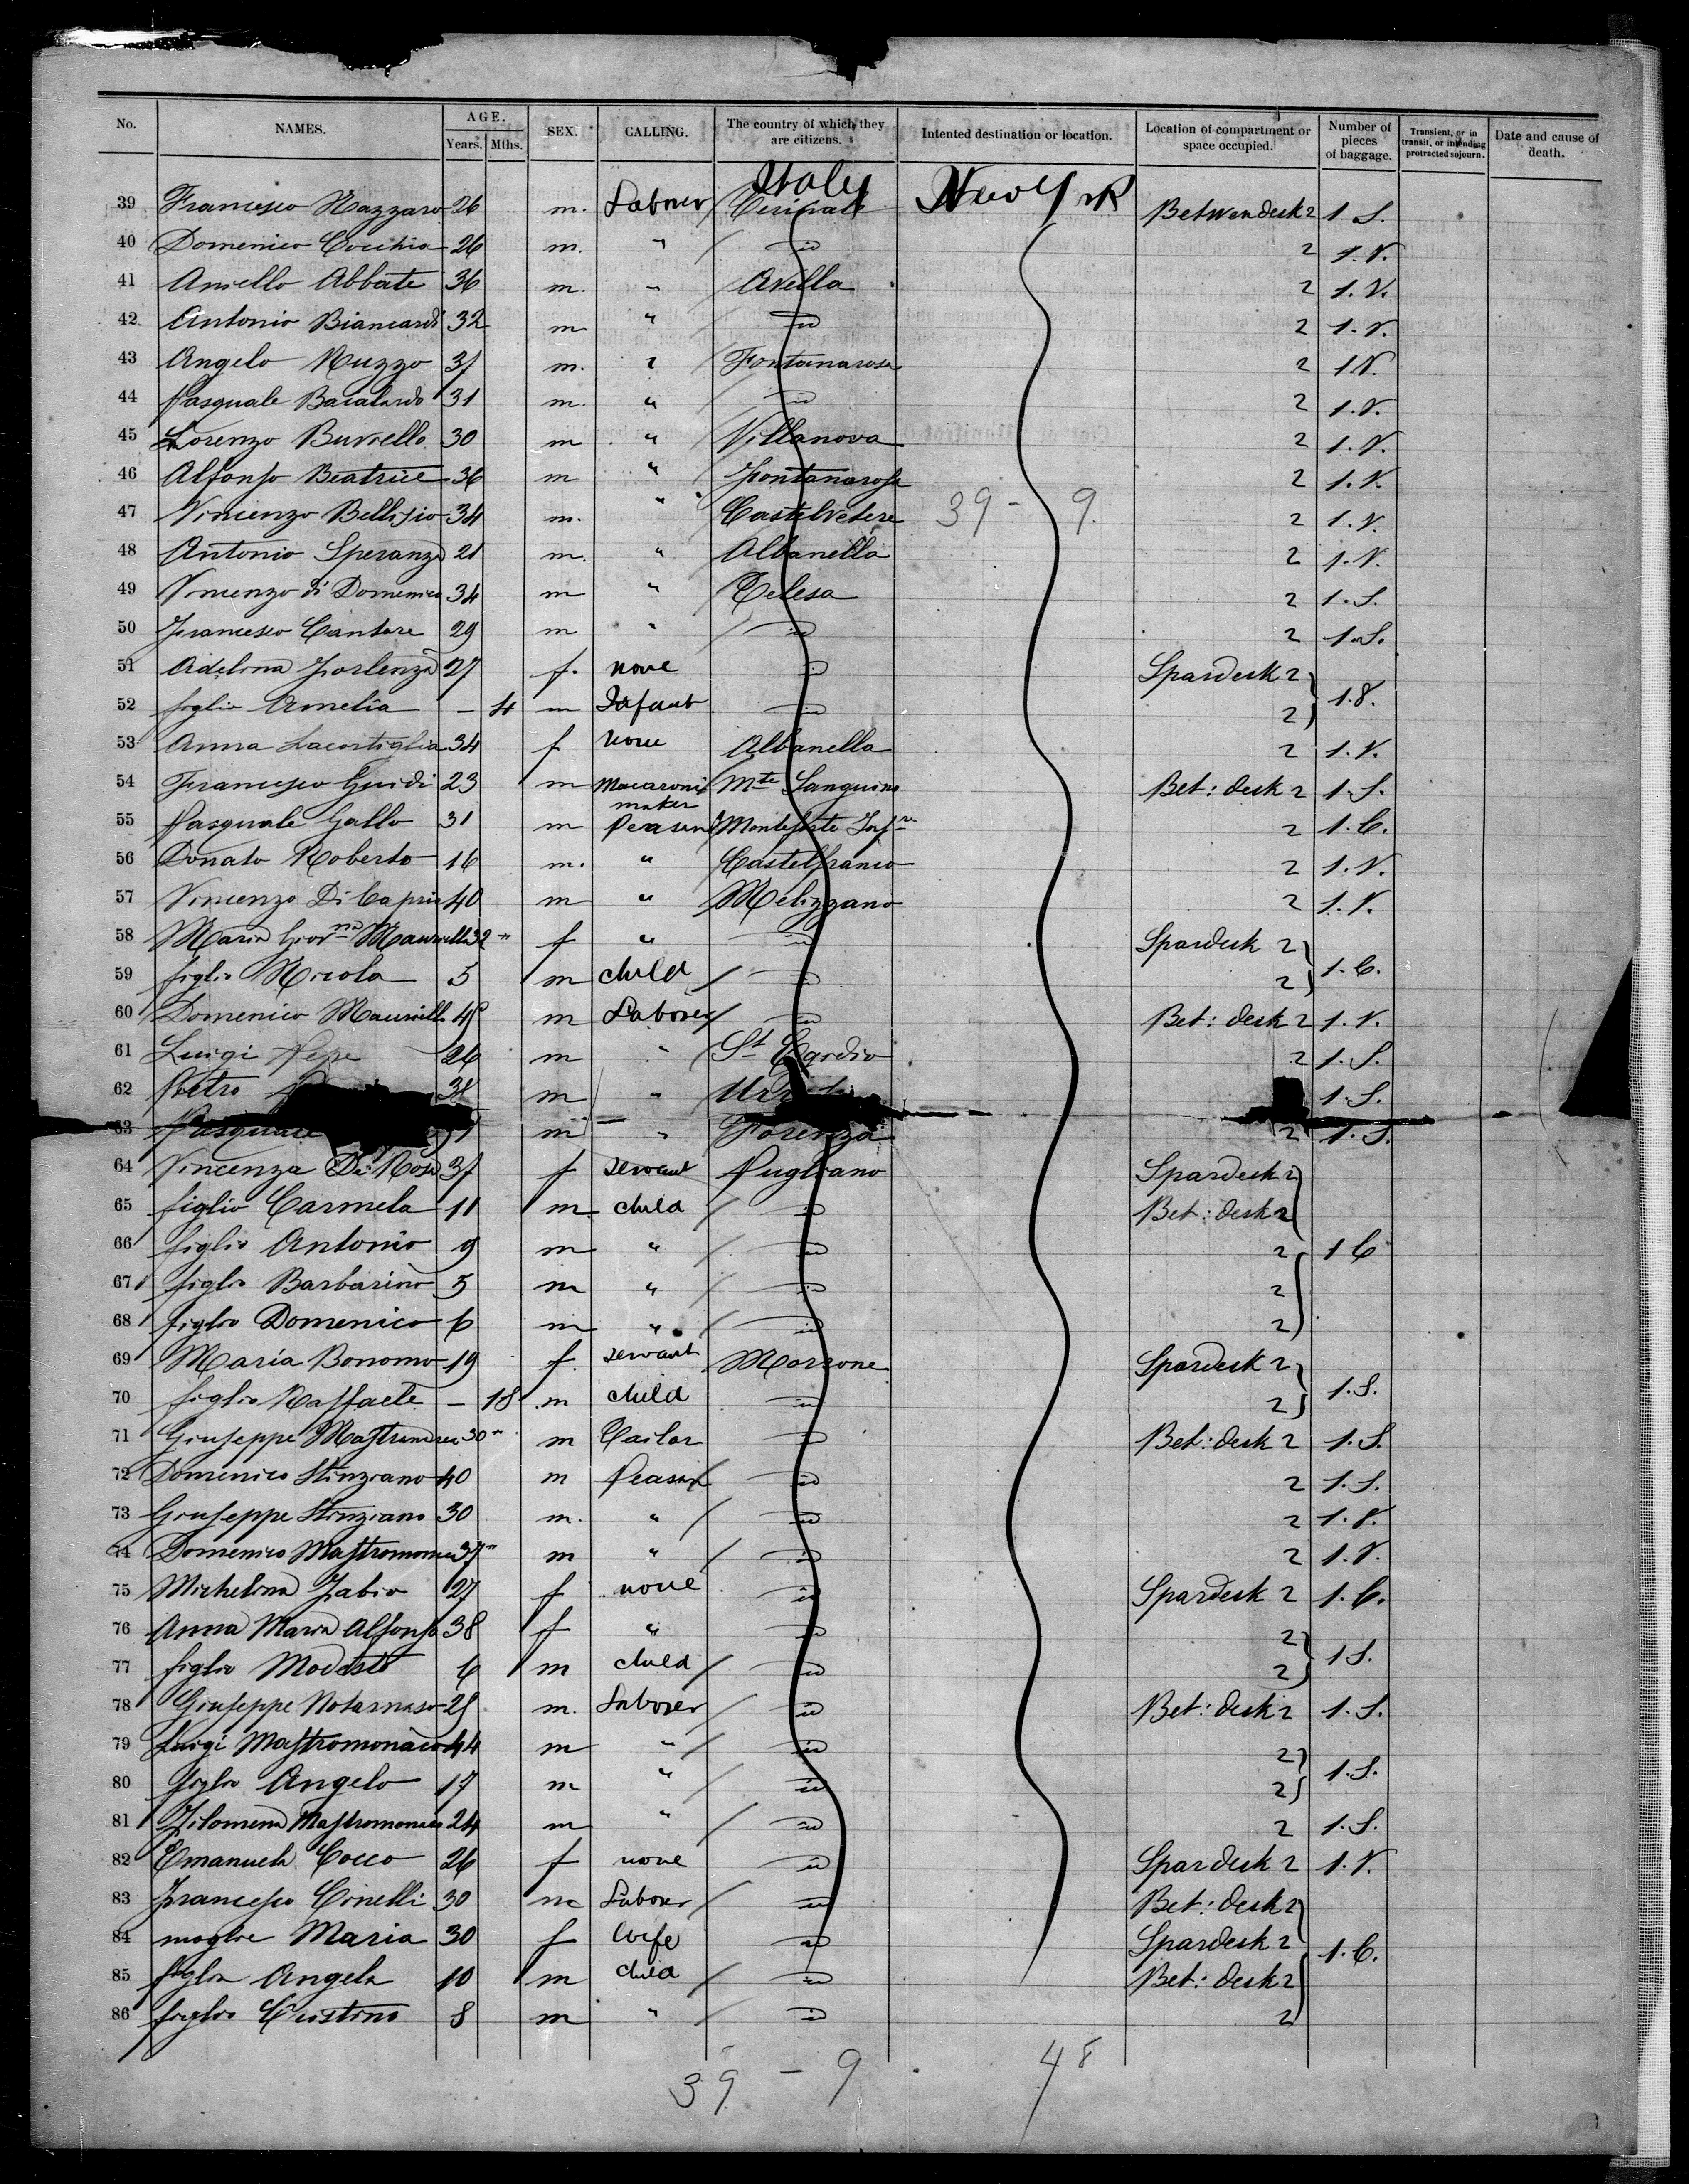 No. NAMES. AGE. SEX. CALLING. The country of which they are citizens. Intented destination or location. Location of compartment or space occupied. Number of pieces of baggage. Transient, or in transit, or intending protracted sojourn. Date and cause of death.
Years. Mths.
Italy New York
39 Francesco Nazzaro 26 m. Laborer Betwendesk 2 1 S.
40 Domenico Cocchia 26 m. " id 2 1. V.
41 Aniello Abbate 36 m. " Avella 2 1. V.
42 Antonio Biancardi 32 m " id 2 1. V.
43 Angelo Ruzzo 37 m. " Fontanarosa 2 1 V.
44 Pasquale Bacalardo 31 m. " id 2 1. V.
45 Lorenzo Burriello 30 m " Villanova 2 1. V.
46 Alfonso Beatrice 36 m " Fontanarosa 2 1. V.
47 Vincenzo Bellisio 34 m. " Castelvetere 39 - 9. 2 1. V.
48 Antonio Speranza 21 m. " Albanella 2 1. V.
49 Vincenzo di Domenico 34 m " Telesa 2 1. S.
50 Francesco Cantore 29 m " id 2 1. S.
51 Adelina Forlenza 27 f. none id Spardesk 2
52 figlio Amelia - 4 m Infant id 2 1. S.
53 Anna Lacostiglia 34 f none Albanella 2 1. V.
54 Francesco Guidi 23 m Macaroni maker Mte Sanguino Bet: desk 2 1. S.
55 Pasquale Gallo 31 m Peasant Monteforte 2 1. C.
56 Donato Roberto 16 m. " Castelfranco 2 1. V.
57 Vincenzo Di Caprio 40 m " Melizzano 2 1. V.
58 Maria Giovna Mauriello 32 " f " id Spardesk 2
59 figlio Nicola 5 m child id 2 1. C.
60 Domenico Mauriello 45 m Laborer id Bet: desk 2 1. V.
61 Luigi Pepe 26 m " St Egidio 2 1. S.
62 Pietro m " 1. S.
63 Pasquale m " Forenza 2 1. S.
64 Vincenza Di Rosa 37 f servant Pugliano Spardesk 2
65 figlio Carmela 11 m. child id Bet: desk 2
66 figlio Antonio 9 m " id 2 1 C
67 figlio Barbarino 5 m " id 2
68 figlio Domenico 6 m " id 2
69 Maria Bonomo 19 f. servant Morrone Spardesk 2
70 figlio Raffaele - 18 m child id 2 1. S.
71 Giuseppe Mastrandrea 30 " m Tailor id Bet: desk 2 1. S.
72 Domenico Stinziano 40 m Peasant id 2 1. S.
73 Giuseppe Stinziano 30 m. " id 2 1. V.
74 Domenico Mastromonaco 37 " m " id 2 1. V.
75 Michelina Fabio 27 f none id Spardesk 2 1. C.
76 Anna Maria Alfonso 38 f " id 2
77 figlio Modesto 6 m child id 2 1 S.
78 Giuseppe Notarnaso 25 m. Laborer id Bet: desk 2 1. S.
79 Luigi Mastromonaco 44 m " id 2
80 figlio Angelo 17 m " id 2 1. S.
81 Filomena Mastromonaco 24 m " id 2 1. S.
82 Emanuela Cocco 26 f none id Spardesk 2 1. V.
83 Francesco Cinelli 30 m Laborer id Bet: desk 2
84 moglie Maria 30 f Wife id Spardesk 2 1. C.
85 figlia Angela 10 m child id Bet: desk 2
86 figlio Cristino 8 m " id 2
39 - 9 48